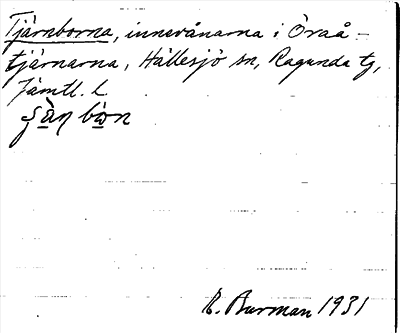 Tjärnborna, innevånarna i Öraå-
tjärnarna, Hällesjö sn, Ragunda tg,
Jämtl. L
R. Burman 1931